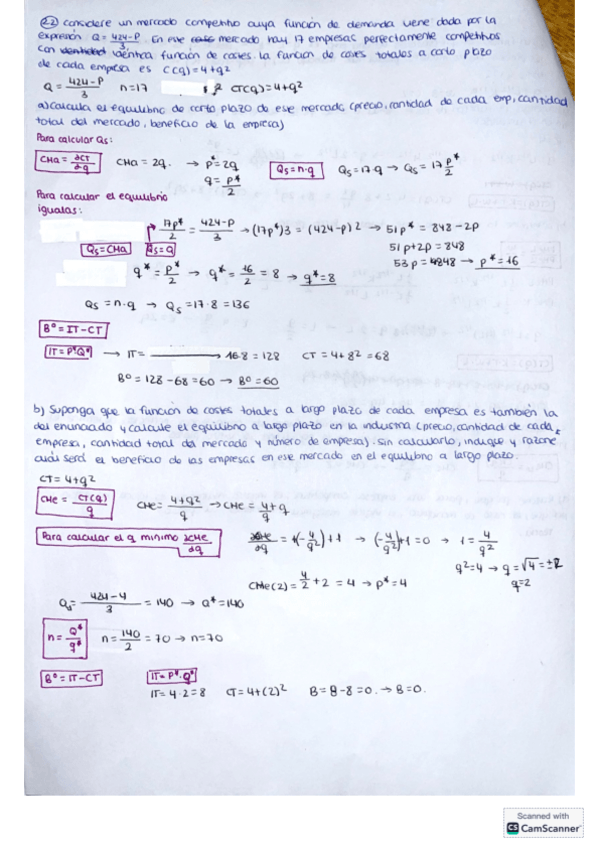 2.2) considere un mercado competitivo cuya función de demanda viene dada por la
expresión Q = (424-P)/3. En este mercado hay 17 empresas perfectamente competitivas
con idéntica función de costes. La función de costes totales a corto plazo
de cada empresa es C(q) = 4+q²
Q = (424-P)/3 n=17 CT(q) = 4+q²
a) calcula el equilibrio de corto plazo de este mercado (precio, cantidad de cada emp, cantidad
total del mercado, beneficio de la empresa)
Para calcular Qs:
CMa = ∂CT/∂q CMa = 2q. → p* = 2q Qs = n·q Qs = 17·q → Qs = 17 p*/2
q = p*/2
Para calcular el equilibrio
igualas:
17p*/2 = (424-P)/3 → (17p*)3 = (424-P)2 → 51p* = 848 - 2p
Qs = CMa Qs = Q 51p+2p = 848
53p = 848 → p* = 16
q* = p*/2 → q* = 16/2 = 8 → q* = 8
Qs = n·q → Qs = 17·8 = 136
Bº = IT - CT
IT = P*Q* → IT = 16·8 = 128 CT = 4+8² = 68
Bº = 128 - 68 = 60 → Bº = 60
b) Suponga que la función de costes totales a largo plazo de cada empresa es también la
del enunciado y calcule el equilibrio a largo plazo en la industria (precio, cantidad de cada
empresa, cantidad total del mercado y número de empresa). Sin calcularlo, indique y razone
cuál será el beneficio de las empresas en este mercado en el equilibrio a largo plazo.
CT = 4+q²
CMe = CT(q)/q CMe = (4+q²)/q → CMe = 4/q + q
Para calcular el q mínimo ∂CMe/∂q ∂CMe/∂q = (-4/q²)+1 → (-4/q²)+1 = 0 → 1 = 4/q²
q² = 4 → q = √4 = ±2
q = 2
CMe(2) = 4/2 + 2 = 4 → p* = 4
Q = (424-4)/3 = 140 → Q* = 140
n = Q*/q* n = 140/2 = 70 → n = 70
Bº = IT - CT IT = P*·Q*
IT = 4·2 = 8 CT = 4+(2)² B = 8-8 = 0. → B = 0.
Scanned with
CS CamScanner